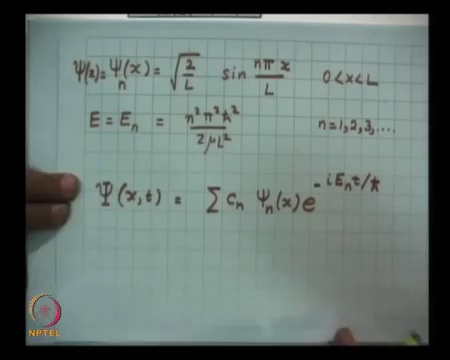 ψ(x) = ψn(x) = √(2/L) sin nπx/L 0<x<L
E = En = n²π²ħ²/2μL² n=1,2,3,....
Ψ(x,t) = Σ Cn ψn(x) e^(-iEnt/ħ)
NPTEL